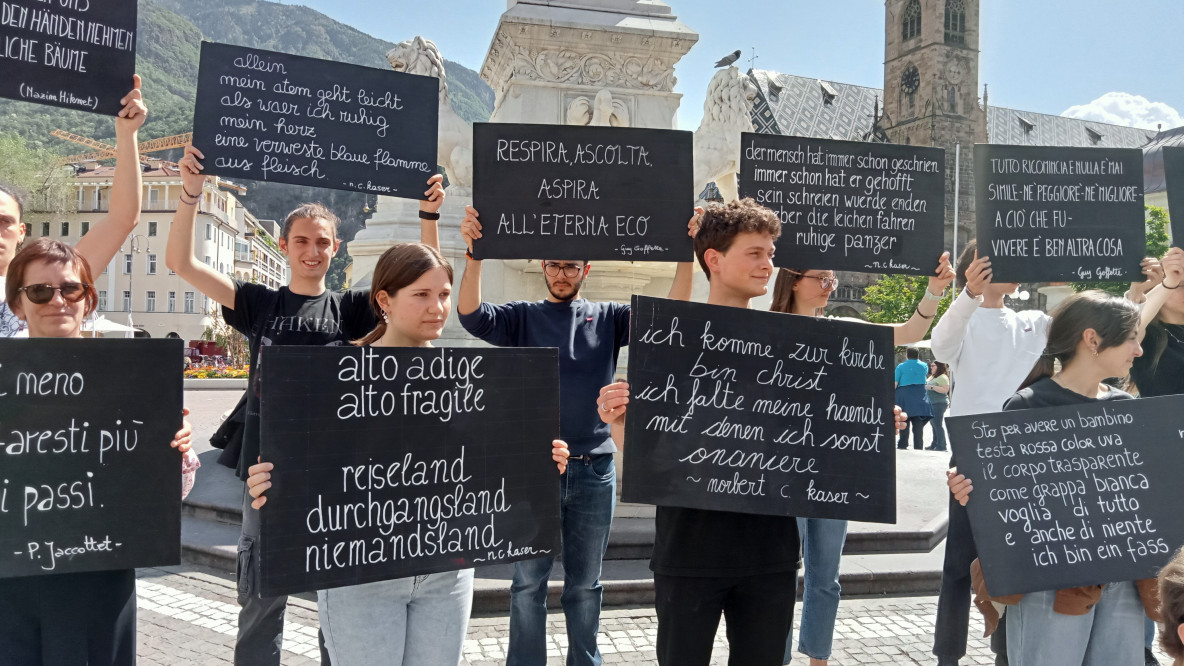 DEN HÄNDEN NEHMEN
LICHE BÄUME
(Nazim Hikmet)
allein
mein atem geht leicht
als waer ich ruhig
mein herz
eine verweste blaue flamme
aus fleisch.
- n.c. kaser -
RESPIRA, ASCOLTA,
ASPIRA
ALL'ETERNA ECO
- Guy Goffette -
der mensch hat immer schon geschrien
immer schon hat er gehofft
sein schreien wuerde enden
aber die leichen fahren
ruhige panzer
- n.c. kaser -
TUTTO RICOMINCIA E NULLA E' MAI
SIMILE - NE' PEGGIORE - NE' MIGLIORE -
A CIÓ CHE FU -
VIVERE E' BEN ALTRA COSA
- Guy Goffette
meno
aresti più
i passi.
- P. Jaccottet -
alto adige
alto fragile
reiseland
durchgangsland
niemandsland
~ n c kaser ~
ich komme zur kirche
bin christ
ich falte meine haende
mit denen ich sonst
onaniere
~ norbert c. kaser ~
Sto per avere un bambino
testa rossa color uva
il corpo trasparente
come grappa bianca
voglia di tutto
e anche di niente
ich bin ein fass